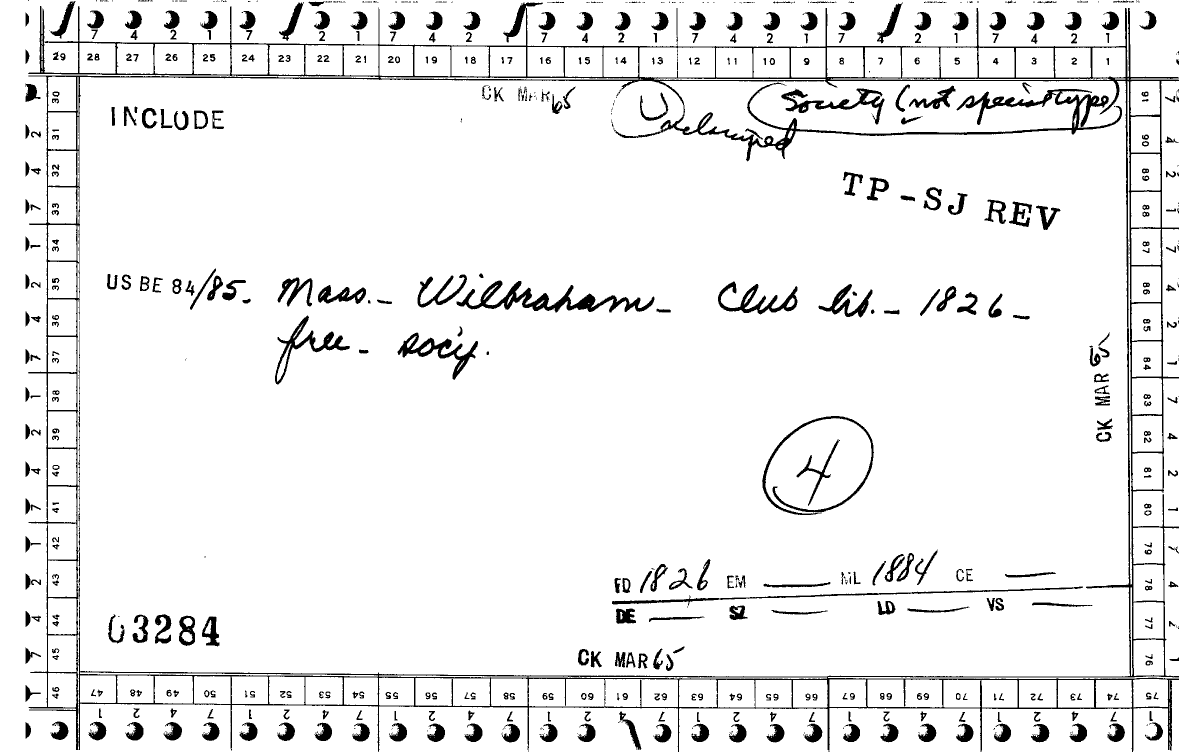 7 4 2 1 7 4 2 1 7 4 2 1 7 4 2 1 7 4 2 1 7 4 2 1 7 4 2 1
29 28 27 26 25 24 23 22 21 20 19 18 17 16 15 14 13 12 11 10 9 8 7 6 5 4 3 2 1
CK MAR 65
Society (not special type)
INCLUDE
U
TP-SJ REV
US BE 84/85. Mass. - Wilbraham - Club lib. - 1826 -
free - socy.
CK MAR 65
4
FD 1826 EM — ML 1884 CE —
DE — SZ — LD — VS —
03284
CK MAR 65
30 31 32 33 34 35 36 37 38 39 40 41 42 43 44 45 46
91 90 89 88 87 86 85 84 83 82 81 80 79 78 77 76 75
47 48 49 50 51 52 53 54 55 56 57 58 59 60 61 62 63 64 65 66 67 68 69 70 71 72 73 74 75
1 2 4 7 1 2 4 7 1 2 4 7 1 2 4 7 1 2 4 7 1 2 4 7 1 2 4 7